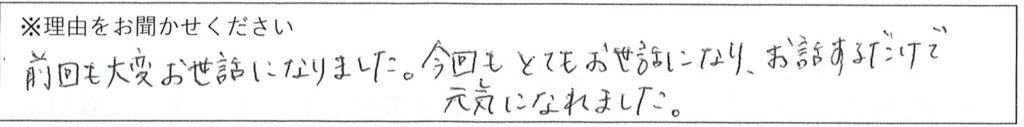 ※理由をお聞かせください
前回も大変お世話になりました。今回もとてもお世話になり、お話するだけで
元気になれました。